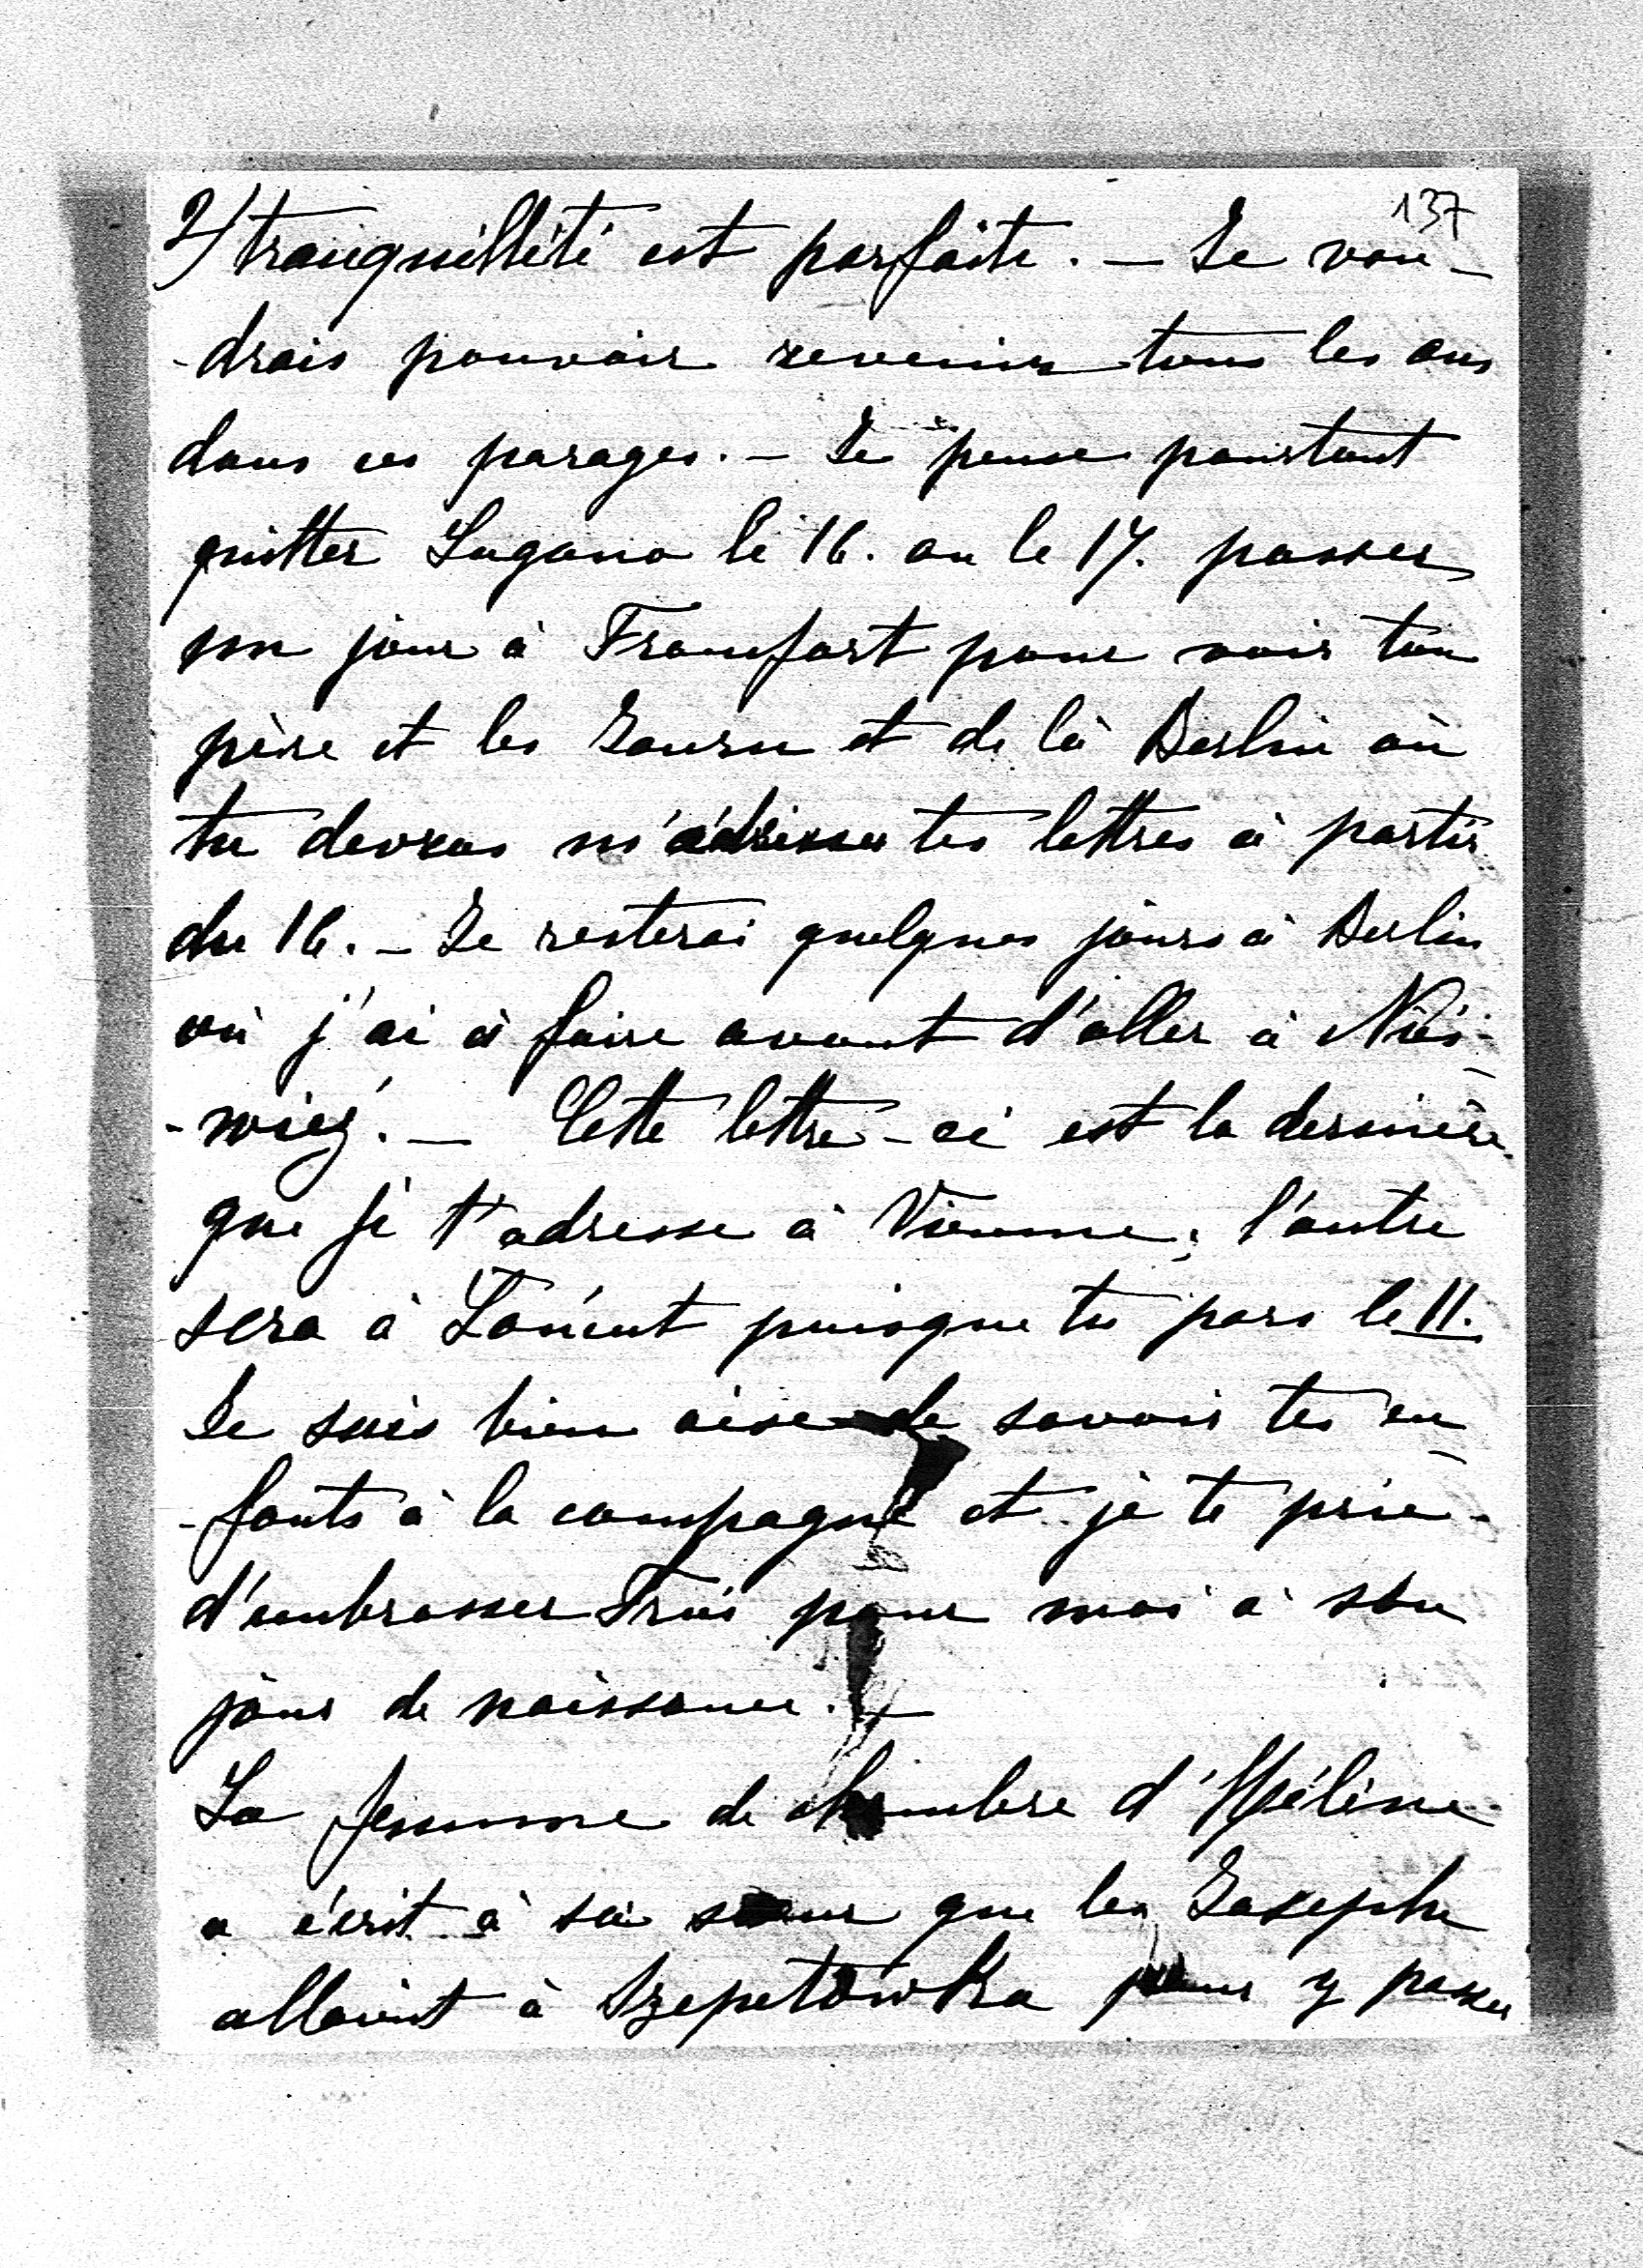 137
2/ tranquillité est parfaite. — Je vou-
-drais pouvoir revenir tous les ans
dans ces parages. — Je pense pourtant
quitter Lugano le 16. ou le 17. passer
un jour à Francfort pour voir ton
père et les et de là Berlin où
tu devras m'adresser tes lettres à partir
du 16. — Je resterai quelques jours à Berlin
où j'ai à faire avant d'aller à Nies-
-wież. — Cette lettre-ci est la dernière
que je t'adresse à Vienne; l'autre
sera à Łańcut puisque tu pars le 11.
Je suis bien aise de savoir tes en-
-fants à la campagne et je te prie
d'embrasser pour moi à son
jour de naissance. —
La femme de chambre d'Hélène
a écrit à sa sœur que les Joseph
allaient à Szepetówka pour y passer